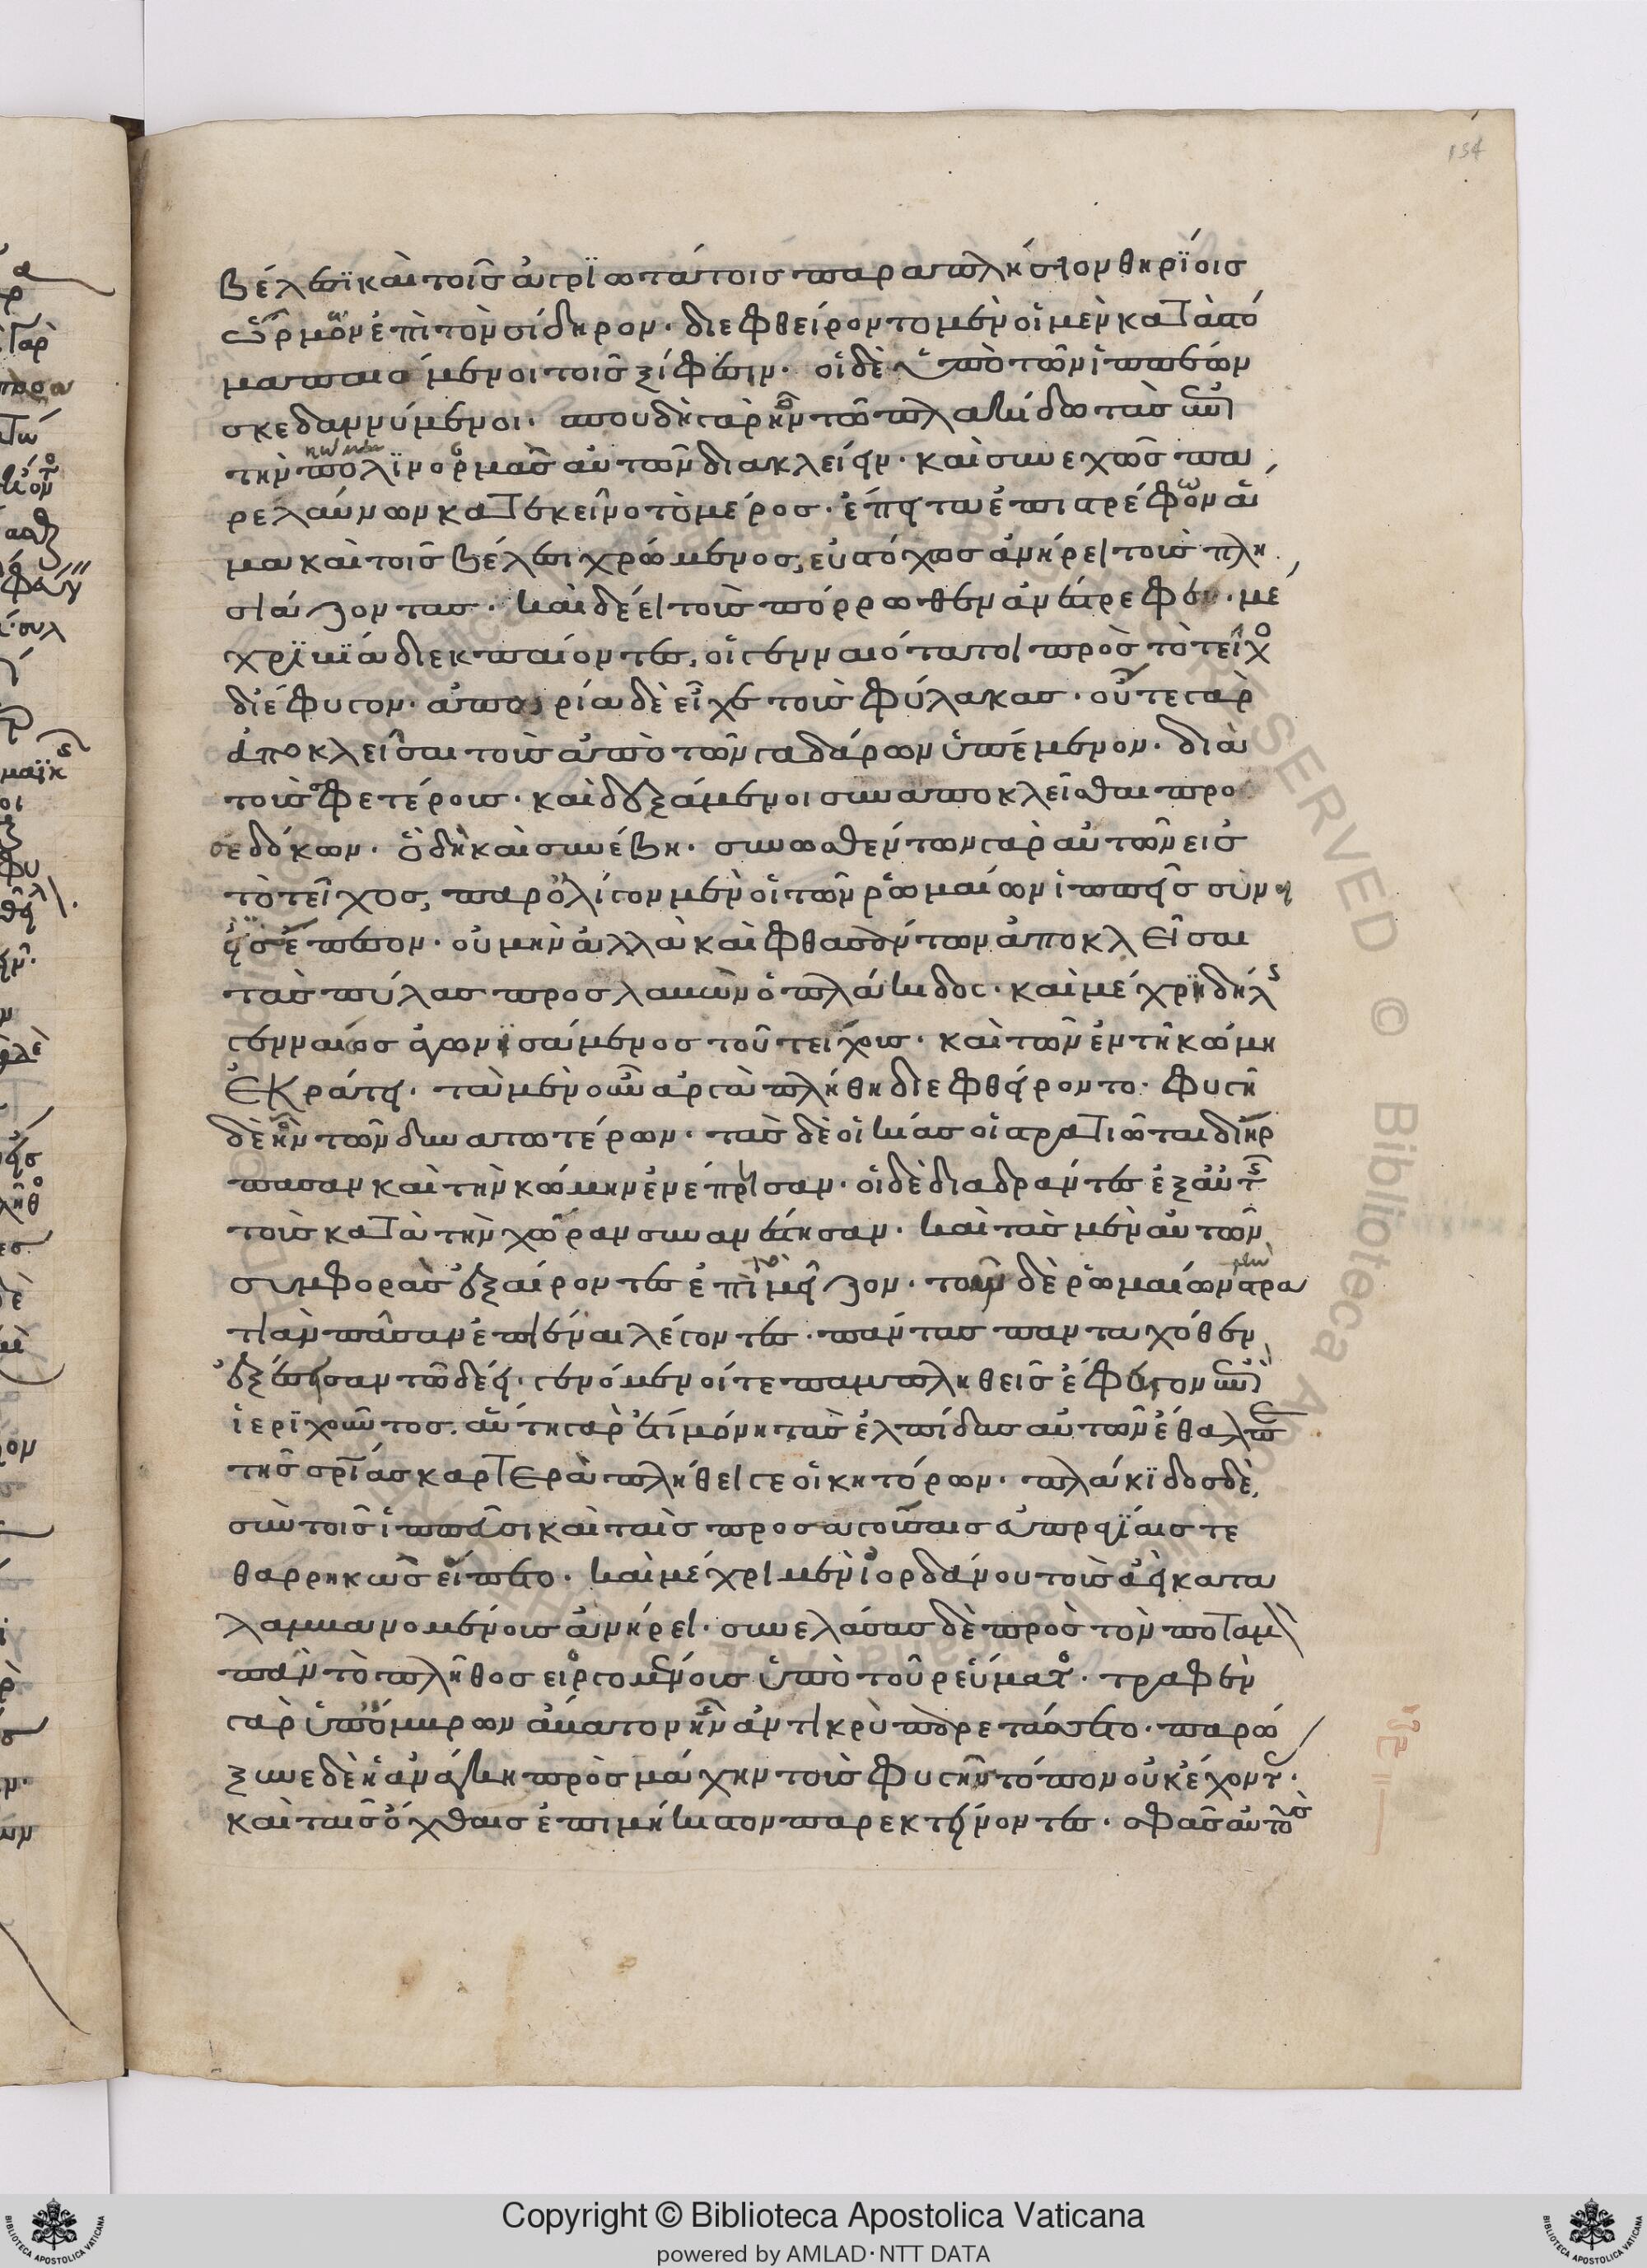 βέλεσϊ καὶ τοῖς ἀγρϊωτάτοις παραπλήσιον θηρϊοις
ὥρμων ἐπὶ τὸν σίδηρον· διεφθείροντο μὲν οἱ μὲν κατὰ στό
μα παιόμενοι τοῖς ξίφεσιν· οἱ δὲ ὑπὸ τῶν ἱππέων
σκεδαννύμενοι· σπουδὴ γὰρ ἦν τῶ πλακίδω τὰς ἐπὶ
τὴν πόλϊν ὁρμὰς αὐτῶν διακλείειν· καὶ συνεχῶς πα
ρελαύνων κατ' ἐκεῖνο τὸ μέρος· ἔπειτα ἐπιστρέφων ἅ
μα καὶ τοῖς βέλεσι χρώμενος, εὐστόχως ἀνήρει τοὺς πλη
σιάζοντας· καὶ δέει τοὺς πόρρωθεν ἀνέστρεφεν· μέ
χρϊ βία διεκπαίοντες, οἱ γενναιότατοι πρὸς τὸ τεῖχος
διέφυγον· ἀπορία δὲ εἶχε τοὺς φύλακας· οὔτε γὰρ
ἀποκλεῖσαι τοὺς ἀπὸ τῶν γαδάρων ὑπέμενον· διὰ
τοὺς σφετέρους· καὶ δεξάμενοι συναποκλεῖσθαι προ
σεδόκων· ὃ δὴ καὶ συνέβη· συνωσθέντων γὰρ αὐτῶν εἰς
τὸ τεῖχος, παρ' ὀλίγον μὲν οἱ τῶν ῥωμαίων ἱππεῖς συν
εισέπεσον· οὐ μὴν ἀλλὰ καὶ φθασάντων ἀποκλεῖσαι
τὰς πύλας προσλαβὼν ὁ πλάκιδος· καὶ μέχρϊ δείλης
γενναίως ἀγωνϊσάμενος τοῦ τείχους· καὶ τῶν ἐν τῆ κώμη
ἐκράτει· τὰ μὲν οὖν ἀργὰ πλήθη διεφθείροντο· φυγὴ
δὲ ἦν τῶν δυνατωτέρων· τὰς δὲ οἰκίας οἱ στρατιῶται διήρ
πασαν καὶ τὴν κώμην ἐνέπρησαν· οἱ δὲ διαδράντες ἐξ αὐτῆς
τοὺς κατὰ τὴν χώραν συνανέστησαν· καὶ τὰς μὲν αὐτῶν
συμφορὰς ἐξαίροντες ἐπὶ μεῖζον· τὴν δὲ ῥωμαίων στρα
τιὰν πᾶσαν ἐπιέναι λέγοντες· πάντας πανταχόθεν
ἐξέσεισαν τῶ δέει· γενόμενοί τε παμπληθεῖς ἔφευγον ἐπὶ
ἱερϊχοῦντος· αὕτη γὰρ ἔτι μόνη τὰς ἐλπίδας αὐτῶν ἔθαλπε
τῆς σωτηρίας καρτερὰ πλήθει γε οἰκητόρων· πλάκϊδος δὲ
σὺν τοῖς ἱππεῦσι καὶ ταῖς προσαγούσαις εὐπραγίαις τε
θαρρηκὼς εἵπετο· καὶ μέχρι μὲν ἰορδάνου τοὺς ἀεὶ κατα
λαμβανομένους ἀνήρει· συνελάσας δὲ πρὸς τὸν ποταμὸν
πᾶν τὸ πλῆθος εἰργομένους ὑπὸ τοῦ ῥεύματος· τραφὲν
γὰρ ὑπ' ὄμβρων ἄβατον ἦν ἀντικρὺ παρετάσσετο· παρώ
ξυνε δὲ ἡ ἀνάγκη πρὸς μάχην τοὺς φυγῆς τόπον οὐκ ἔχοντας·
καὶ ταῖς ὄχθαις ἐπιμήκιστον παρεκτείνοντες· σφᾶς αὐτοὺς
Copyright © Biblioteca Apostolica Vaticana
powered by AMLAD·NTT DATA